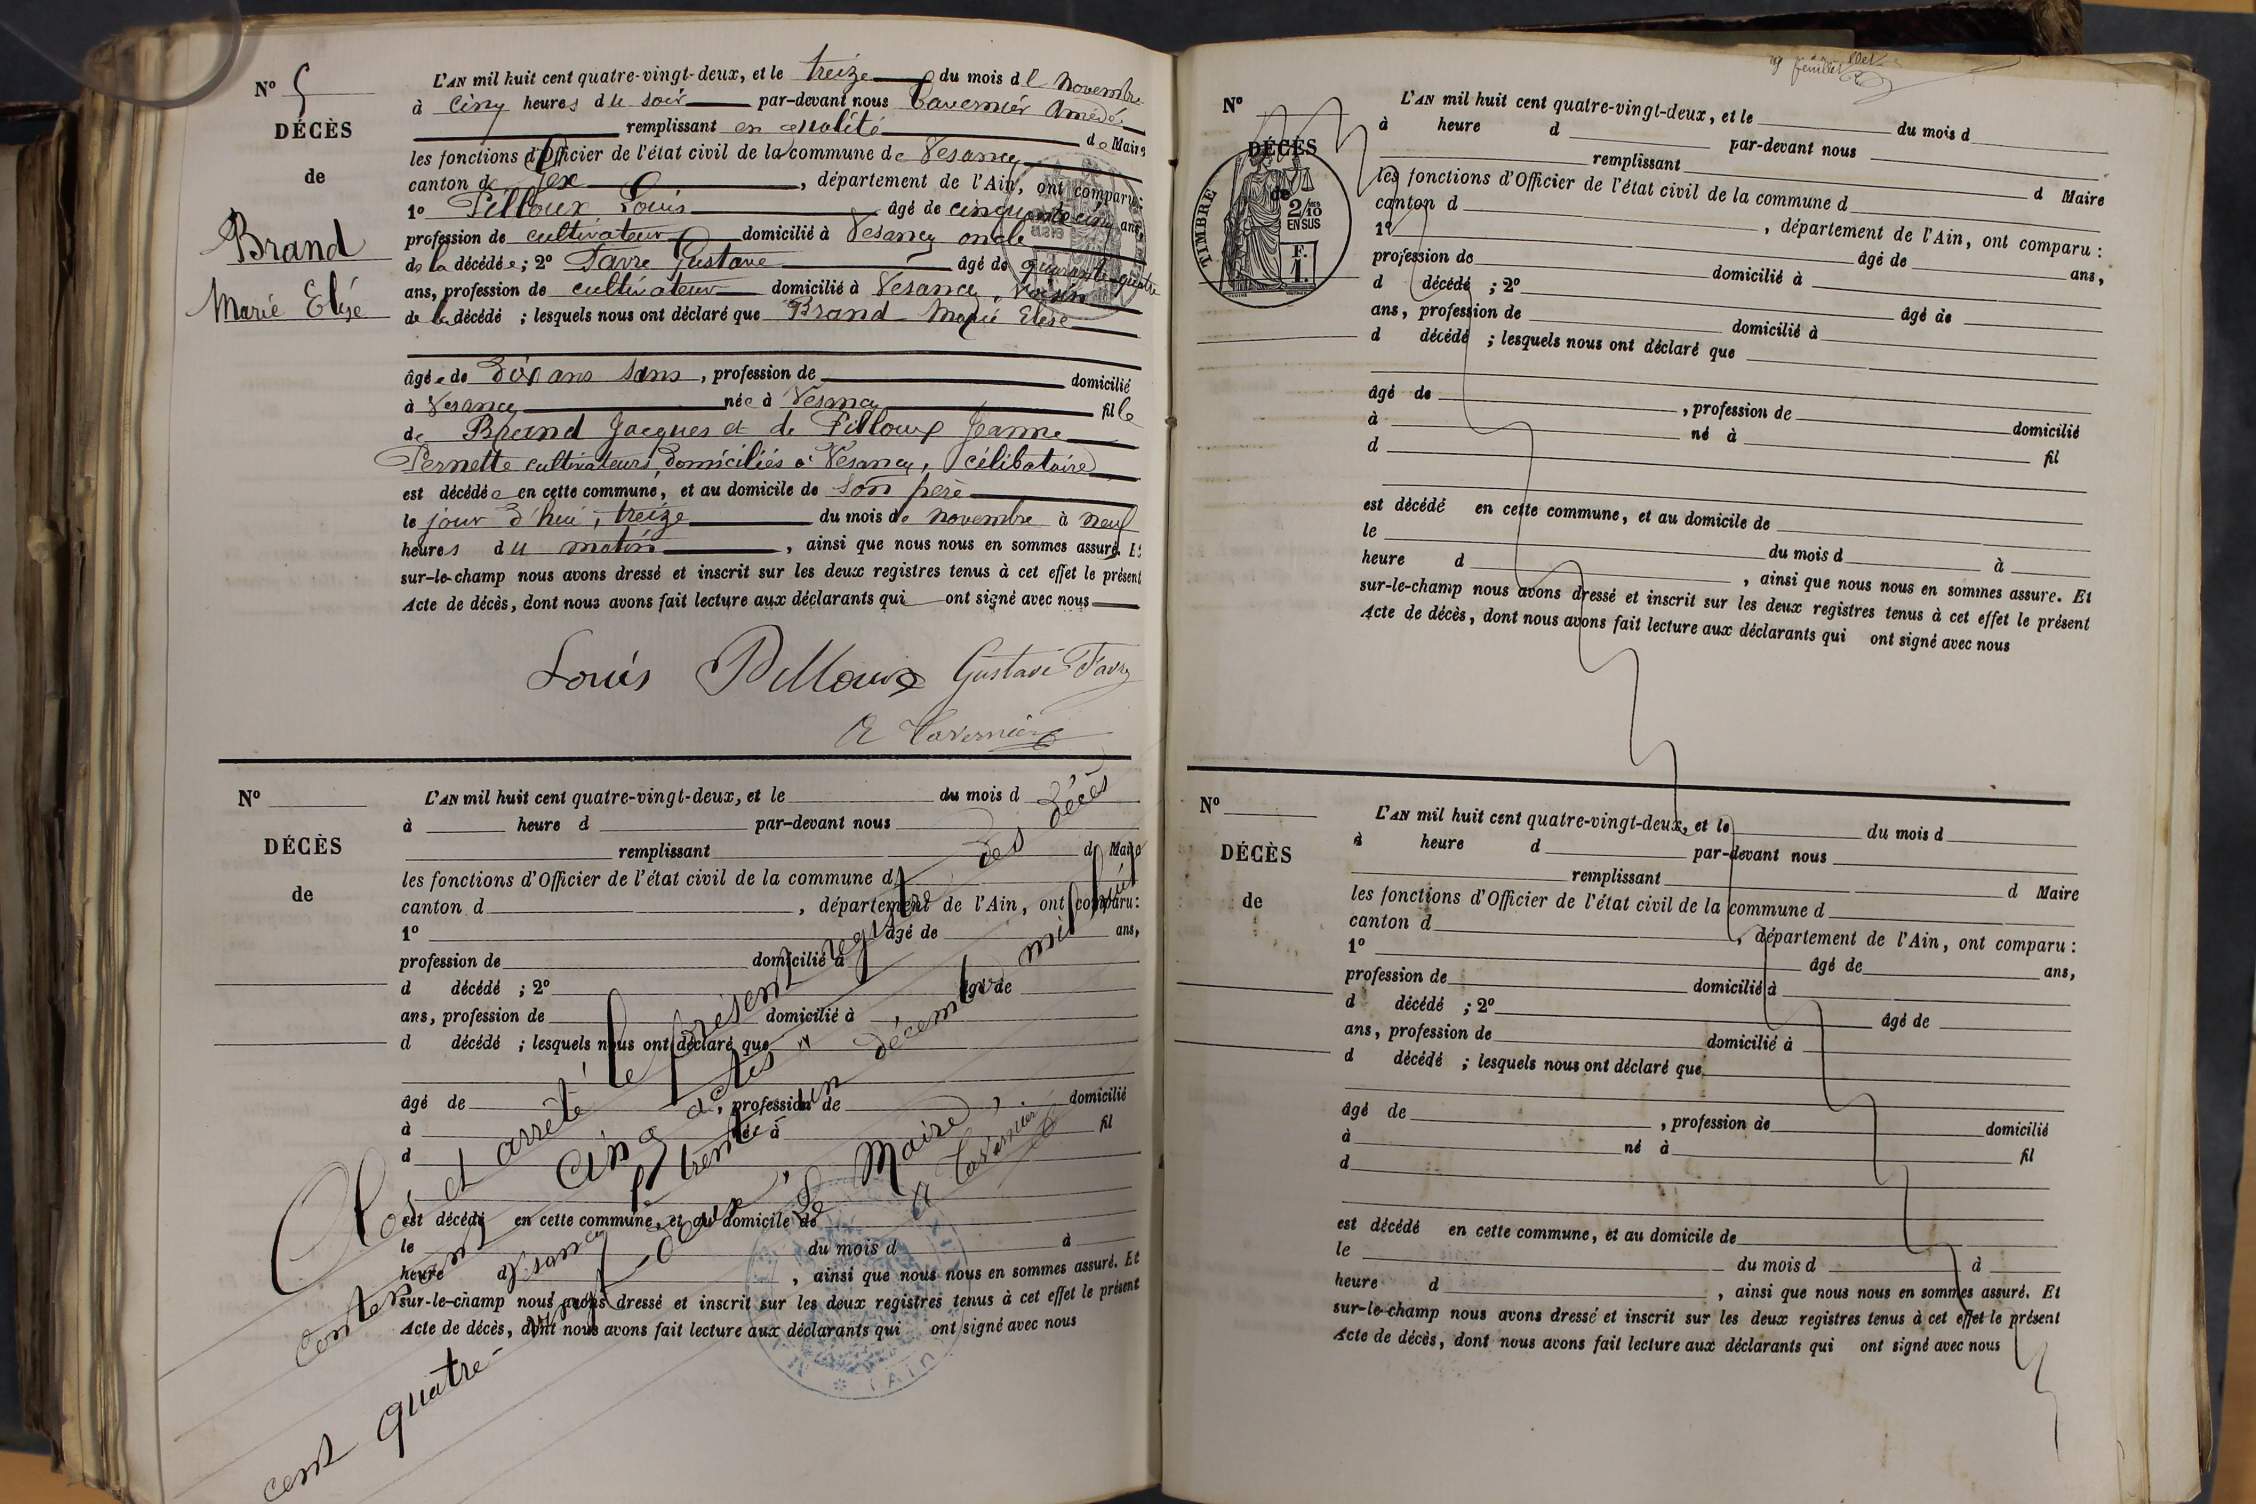 N° 5
DÉCÈS
de
Brand
Marie Elise
L'AN mil huit cent quatre-vingt-deux, et le treize du mois de Novembre
à cinq heures du soir par-devant nous Tavernier Amédé
remplissant en qualité de Maire
les fonctions d'Officier de l'état civil de la commune de Vesancy
canton de Gex, département de l'Ain, ont comparu:
1° Pilloux Louis âgé de cinquante cinq ans,
profession de cultivateur domicilié à Vesancy oncle
de la décédée; 2° Favre Gustave âgé de quarante-quatre
ans, profession de cultivateur domicilié à Vesancy, voisin
de la décédé ; lesquels nous ont déclaré que Brand Marie Elise
âgée de dix ans sans, profession de domicilié
à Vesancy née à Vesancy fille
de Brand Jacques et de Pilloux Jeanne
Pernette cultivateurs, domiciliés à Vesancy, célibataire
est décédée en cette commune, et au domicile de son père
le jour d'hui, treize du mois de novembre à neuf
heures du matin, ainsi que nous nous en sommes assuré. Et
sur-le-champ nous avons dressé et inscrit sur les deux registres tenus à cet effet le présent
Acte de décès, dont nous avons fait lecture aux déclarants qui ont signé avec nous
Louis Pilloux Gustave Favre
A Tavernier
N°
DÉCÈS
de
L'AN mil huit cent quatre-vingt-deux, et le du mois d
à heure d par-devant nous
remplissant d Maire
les fonctions d'Officier de l'état civil de la commune d
canton d , département de l'Ain, ont comparu:
1° âgé de ans,
profession de domicilié à
d décédé ; 2° âgé de
ans, profession de domicilié à
d décédé ; lesquels nous ont déclaré que
âgé de , profession de domicilié
à né à fil
d
est décédé en cette commune, et au domicile de
le du mois d à
heure d , ainsi que nous nous en sommes assuré. Et
sur-le-champ nous avons dressé et inscrit sur les deux registres tenus à cet effet le présent
Acte de décès, dont nous avons fait lecture aux déclarants qui ont signé avec nous
Clos et arrêté le présent registre des décès
contenant cinq actes
Vesancy le trente-un décembre mil huit
cent quatre-vingt-deux,
Le Maire,
A Tavernier
AIN
feuillet
N°
DÉCÈS
de
TIMBRE
2/10
EN SUS
F.
1.
L'AN mil huit cent quatre-vingt-deux, et le du mois d
à heure d par-devant nous
remplissant d Maire
les fonctions d'Officier de l'état civil de la commune d
canton d , département de l'Ain, ont comparu :
1° âgé de ans,
profession de domicilié à
d décédé ; 2° âgé de
ans, profession de domicilié à
d décédé ; lesquels nous ont déclaré que
âgé de , profession de domicilié
à né à fil
d
est décédé en cette commune, et au domicile de
le du mois d à
heure d , ainsi que nous nous en sommes assure. Et
sur-le-champ nous avons dressé et inscrit sur les deux registres tenus à cet effet le présent
Acte de décès, dont nous avons fait lecture aux déclarants qui ont signé avec nous
N°
DÉCÈS
de
L'AN mil huit cent quatre-vingt-deux, et le du mois d
à heure d par-devant nous
remplissant d Maire
les fonctions d'Officier de l'état civil de la commune d
canton d , département de l'Ain, ont comparu :
1° âgé de ans,
profession de domicilié à
d décédé ; 2° âgé de
ans, profession de domicilié à
d décédé ; lesquels nous ont déclaré que
âgé de , profession de domicilié
à né à fil
d
est décédé en cette commune, et au domicile de
le du mois d à
heure d , ainsi que nous nous en sommes assuré. Et
sur-le-champ nous avons dressé et inscrit sur les deux registres tenus à cet effet le présent
Acte de décès, dont nous avons fait lecture aux déclarants qui ont signé avec nous